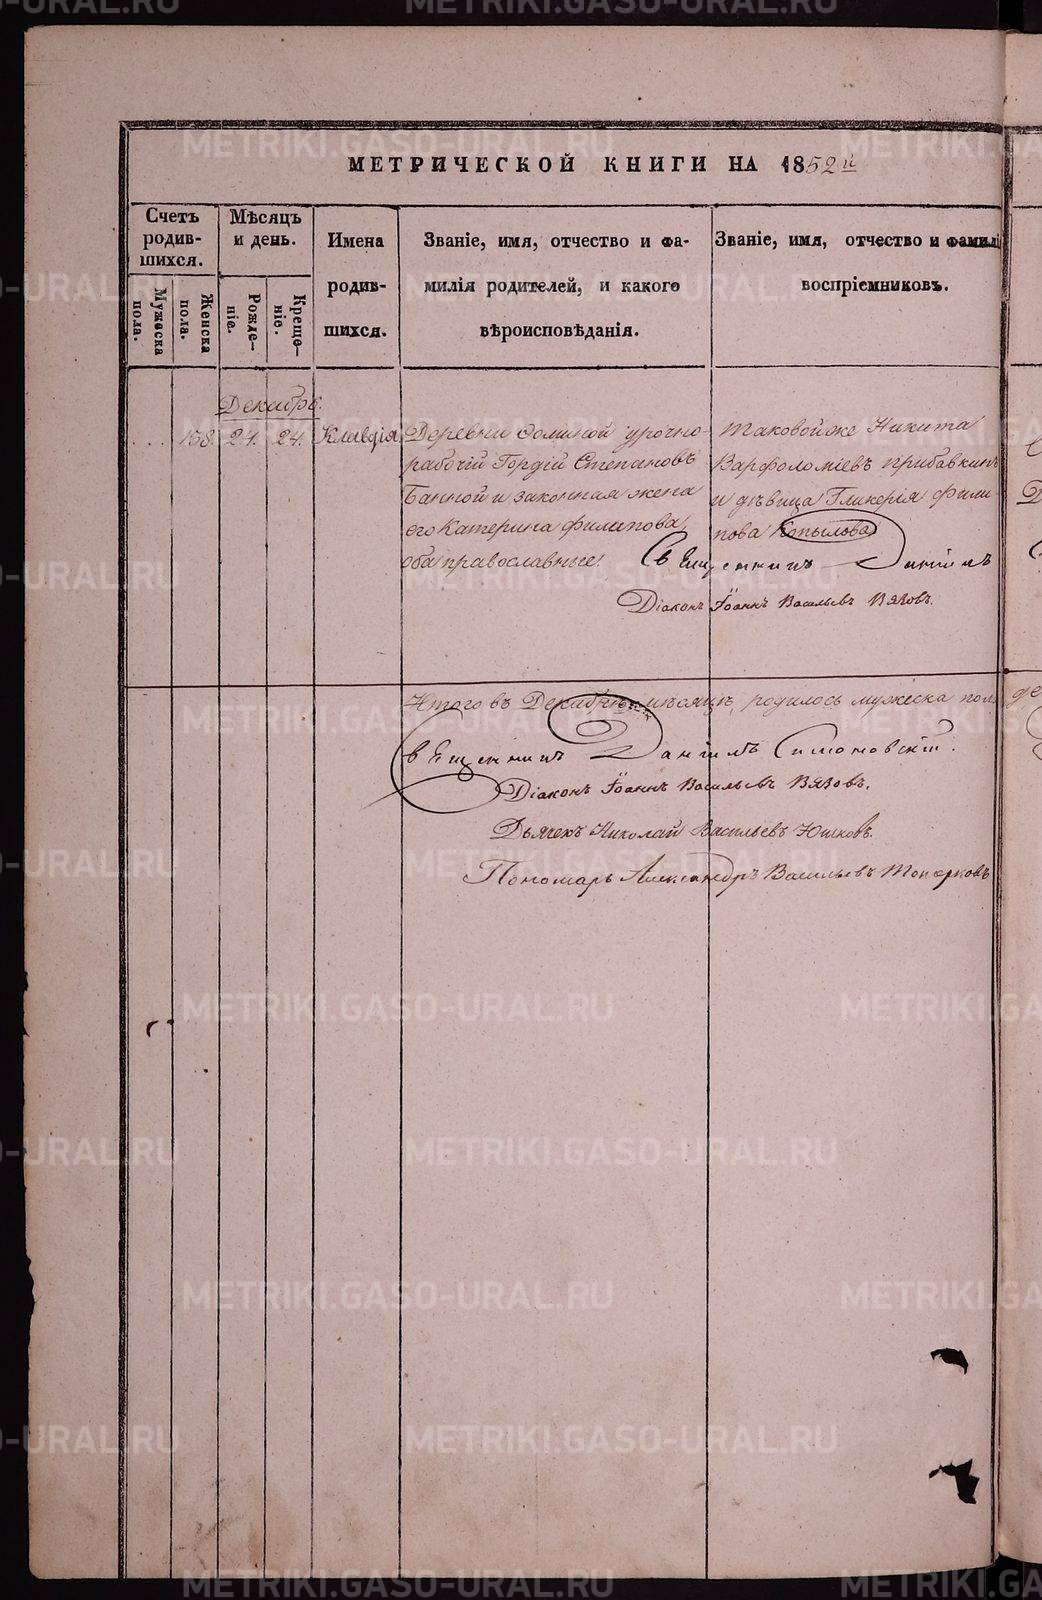 МЕТРИЧЕСКОЙ КНИГИ НА 1852й
Счетъ родив-шихся.
Мѣсяцъ и день.
Имена родив-шихся.
Званіе, имя, отчество и фа-
милія родителей, и какого
вѣроисповѣданія.
Званіе, имя, отчество и фамилі
воспріемниковъ.
Мужеска пола.
Женска пола.
Рожде-ніе.
Креще-ніе.
Декабрь.
... 158. 21. 24. Клавдія
Деревни Ѳоминой урочно-
рабочій Гордій Степановъ
Банной и законная жена
его Катерина Филипова,
оба православные.
таковойже Никита
Варфоломіевъ Прибавкинъ
и дѣвица Гликерія Фили-
пова Копылова
Священникъ Даніилъ
Діаконъ Іоаннъ Васильевъ Вязовъ.
Итого въ Декабрѣ мѣсяцѣ родилось мужеска пола
Священникъ Даніилъ Симоновскій.
Діаконъ Іоаннъ Васильевъ Вязовъ.
Дьячекъ Николай Васильевъ Юшковъ.
Пономарь Александръ Васильевъ Топорковъ
METRIKI.GASO-URAL.RU